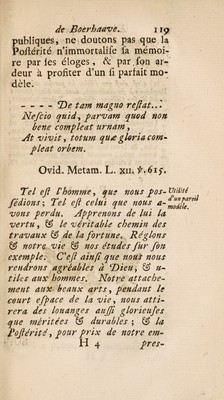 de Boerhaave. 119
publiques, ne doutons pas que la
Postérité n'immortalise sa mémoi-
re par ses éloges, & par son ar-
deur à profiter d'un si parfait mo-
dèle.
- - - - De tam magno restat..:
Nescio quid, parvam quod non
bene compleat urnam,
At vivit, totum quæ gloria com-
pleat orbem.
Ovid. Metam. L. XII. ℣. 615.
Tel est l'homme, que nous pos-
sédions; Tel est celui que nous a-
vons perdu. Apprenons de lui la
vertu, & le véritable chemin des
travaux & de la fortune. Réglons
& notre vie & nos études sur son
exemple. C'est ainsi que nous nous
rendrons agréables à Dieu, & u-
tiles aux hommes. Notre attache-
ment aux beaux arts, pendant le
court espace de la vie, nous atti-
rera des louanges aussi glorieuses
que méritées & durables; & la
Postérité, pour prix de notre em-
H 4 pres-
Utilité
d'un pareil
modèle.